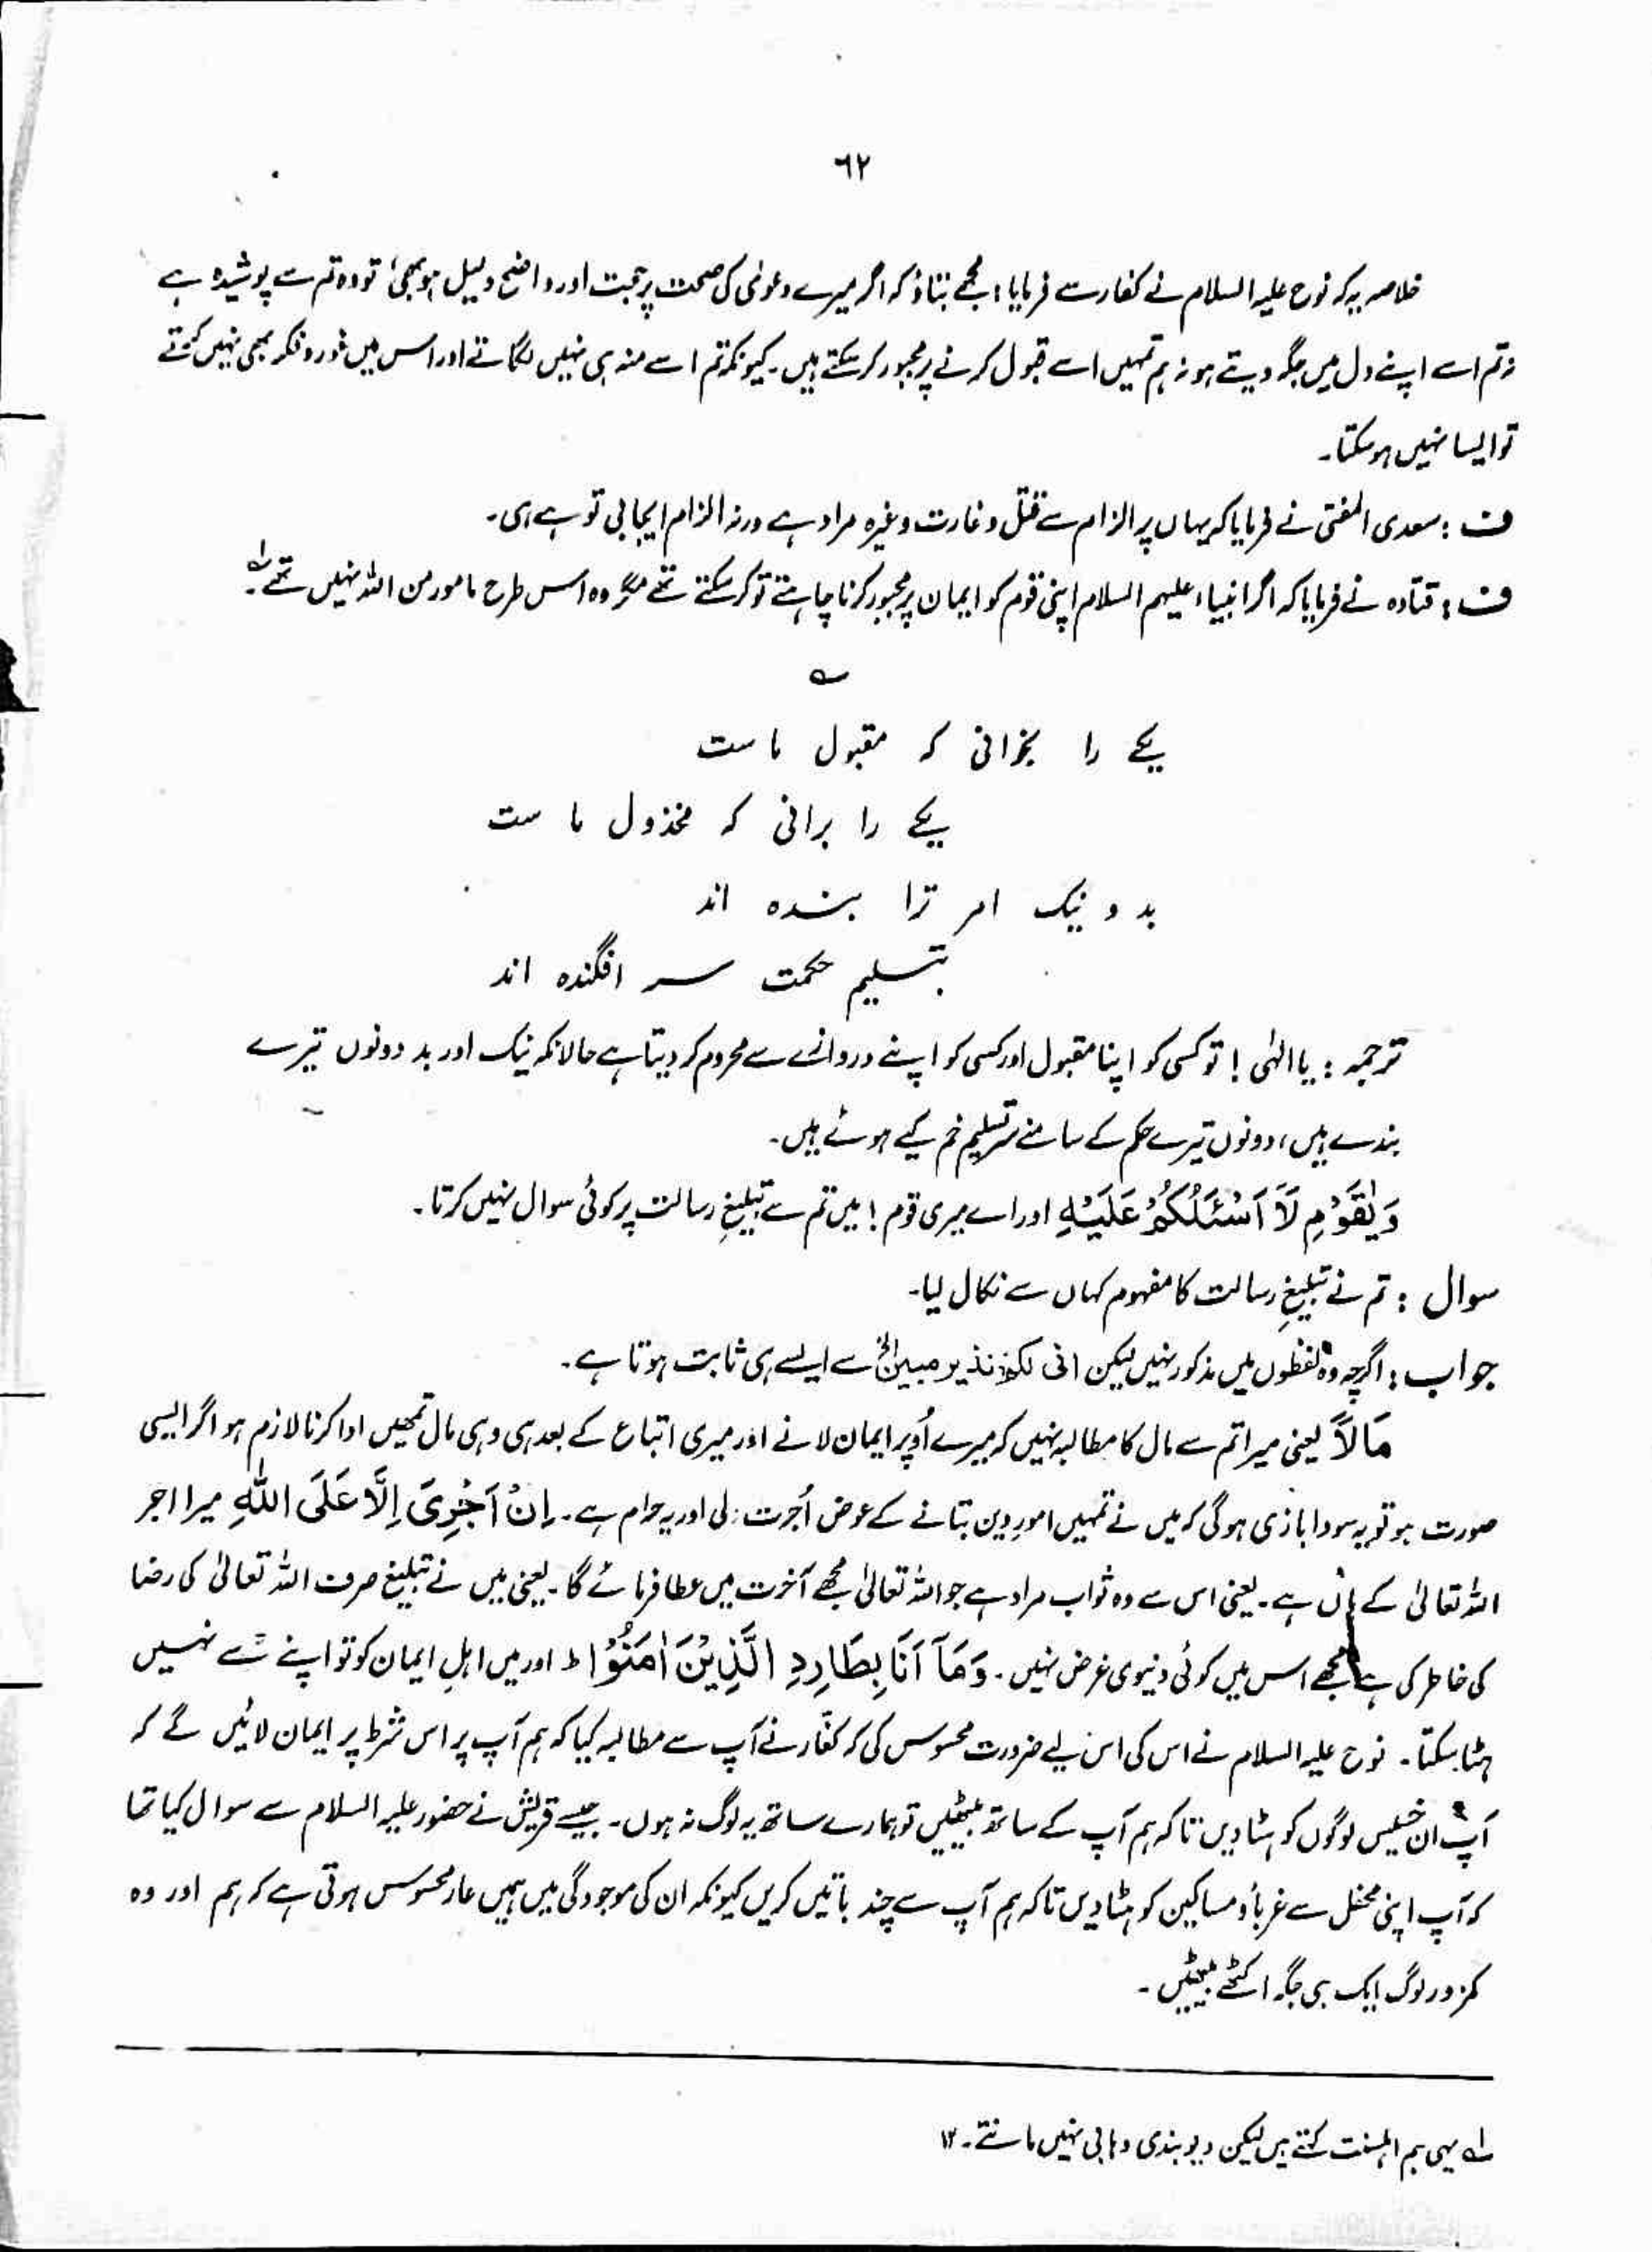 ٦٢
خلاصہ یہ کہ نوح علیہ السلام نے کفار سے فرمایا: مجھے بتاؤ کہ اگر میرے دعوٰی کی صحت پر حجت اور واضح دلیل ہو بھی تو وہ تم سے پوشیدہ ہے
نہ تم اسے اپنے دل میں جگہ دیتے ہو نہ ہم تمہیں اسے قبول کرنے پر مجبور کر سکتے ہیں۔ کیونکہ تم اسے منہ ہی نہیں لگاتے اور اس میں غور و فکر بھی نہیں کرتے
تو ایسا نہیں ہو سکتا۔
ف : سعدی المفتی نے فرمایا کہ یہاں پر الزام سے قتل و غارت وغیرہ مراد ہے ورنہ الزام ایجابی تو ہے ہی۔
ف : قتادہ نے فرمایا کہ اگر انبیاء علیہم السلام اپنی قوم کو ایمان پر مجبور کرنا چاہتے تو کر سکتے تھے مگر وہ اس طرح مامور من اللہ نہیں تھے۔ لے
؎
یکے را بخوانی کہ مقبول ماست
یکے را برانی کہ مخذول ما ست
بد و نیک امر ترا بندہ اند
بتسلیم حکمت سر افگندہ اند
ترجمہ : یا الٰہی ! تو کسی کو اپنا مقبول اور کسی کو اپنے دروازے سے محروم کر دیتا ہے حالانکہ نیک اور بد دونوں تیرے
بندے ہیں، دونوں تیرے حکم کے سامنے سرِ تسلیم خم کیے ہوئے ہیں۔
وَیٰقَوْمِ لَآ اَسْئَلُکُمْ عَلَیْہِ اور اے میری قوم ! میں تم سے تبلیغِ رسالت پر کوئی سوال نہیں کرتا۔
سوال : تم نے تبلیغِ رسالت کا مفہوم کہاں سے نکال لیا۔
جواب : اگرچہ وہ لفظوں میں مذکور نہیں لیکن انی لکم نذیر مبین الخ سے ایسے ہی ثابت ہوتا ہے۔
مَالًا یعنی میرا تم سے مال کا مطالبہ نہیں کہ میرے اُوپر ایمان لانے اور میری اتباع کے بعد ہی وہی مال تمھیں ادا کرنا لازم ہو اگر ایسی
صورت ہو تو یہ سودا بازی ہو گی کہ میں نے تمہیں امورِ دین بتانے کے عوض اُجرت لی اور یہ حرام ہے۔ اِنْ اَجْرِیَ اِلَّا عَلَی اللّٰہِ میرا اجر
اللہ تعالیٰ کے ہاں ہے۔ یعنی اس سے وہ ثواب مراد ہے جو اللہ تعالیٰ مجھے آخرت میں عطا فرمائے گا۔ یعنی میں نے تبلیغ صرف اللہ تعالیٰ کی رضا
کی خاطر کی ہے مجھے اس میں کوئی دنیوی غرض نہیں۔ وَمَآ اَنَا بِطَارِدِ الَّذِیْنَ اٰمَنُوْا ط اور میں اہلِ ایمان کو تو اپنے سے نہیں
ہٹا سکتا۔ نوح علیہ السلام نے اس کی اس لیے ضرورت محسوس کی کہ کفّار نے آپ سے مطالبہ کیا کہ ہم آپ پر اس شرط پر ایمان لائیں گے کہ
آپ ان خسیس لوگوں کو ہٹا دیں تاکہ ہم آپ کے ساتھ بیٹھیں تو ہمارے ساتھ یہ لوگ نہ ہوں۔ جیسے قریش نے حضور علیہ السلام سے سوال کیا تھا
کہ آپ اپنی محفل سے غرباُ و مساکین کو ہٹا دیں تاکہ ہم آپ سے چند باتیں کریں کیونکہ ان کی موجودگی میں ہمیں عار محسوس ہوتی ہے کہ ہم اور وہ
کمزور لوگ ایک ہی جگہ اکٹھے بیٹھیں۔
لے یہی ہم اہلسنت کہتے ہیں لیکن دیوبندی وہابی نہیں مانتے۔ ۱۲